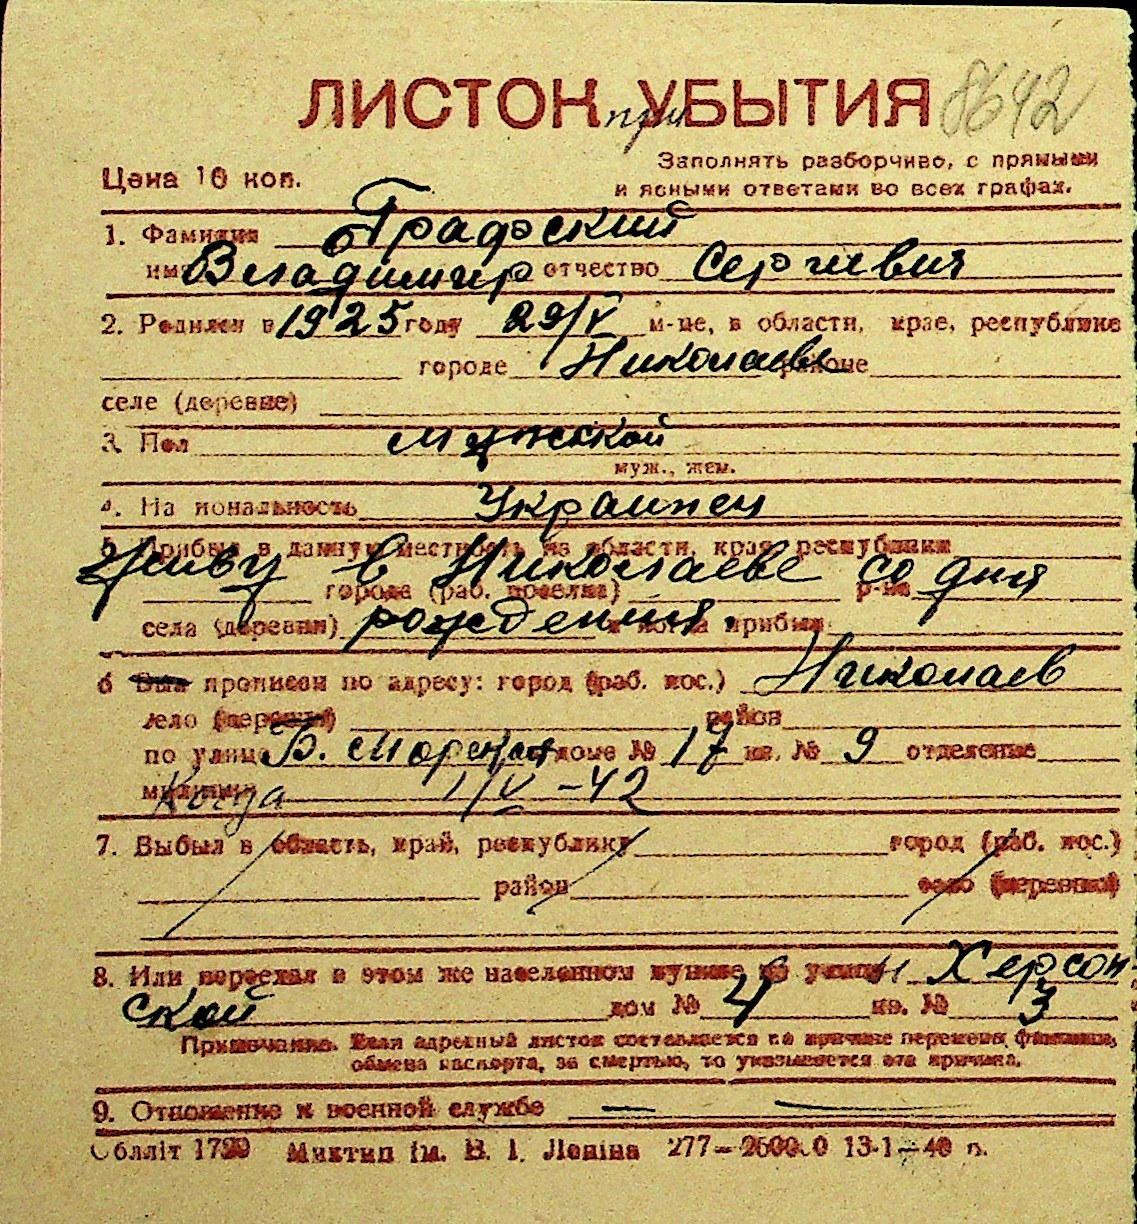 ЛИСТОК при УБЫТИЯ 8642
Цена 10 коп.
Заполнять разборчиво, с прямыми
и ясными ответами во всех графах.
1. Фамилия Графский
имя Владимир отчество Сергиевич
2. Родился в 1925 году 29/V м-це, в области, крае, республике
городе Николаеве районе
селе (деревне)
3. Пол мужской
муж., жен.
4. Национальность Украинец
5 Прибыл в данную местность из области, края, республики
Живу в Николаеве со дня
города (раб. поселка) р-на
села (деревни) рождения. и когда прибыл
6 Был прописан по адресу: город (раб. пос.) Николаев
село (деревня) район
по улице Б. Морская доме № 17 кв. № 9 отделение
милиции Когда 1/V -42
7. Выбыл в область, край, республику город (раб. пос.)
район село (деревня)
8. Или переехал в этом же населенном пункте на улицу Херсон
ской дом № 4 кв. № 3
Примечание. Если адресный листок составляется по причине перемены фамилии,
обмена паспорта, за смертью, то указывается эта причина.
9. Отношение к военной службе —
Облліт 1799 Миктип ім. В. І. Леніна 277—250000 13-1—40 р.